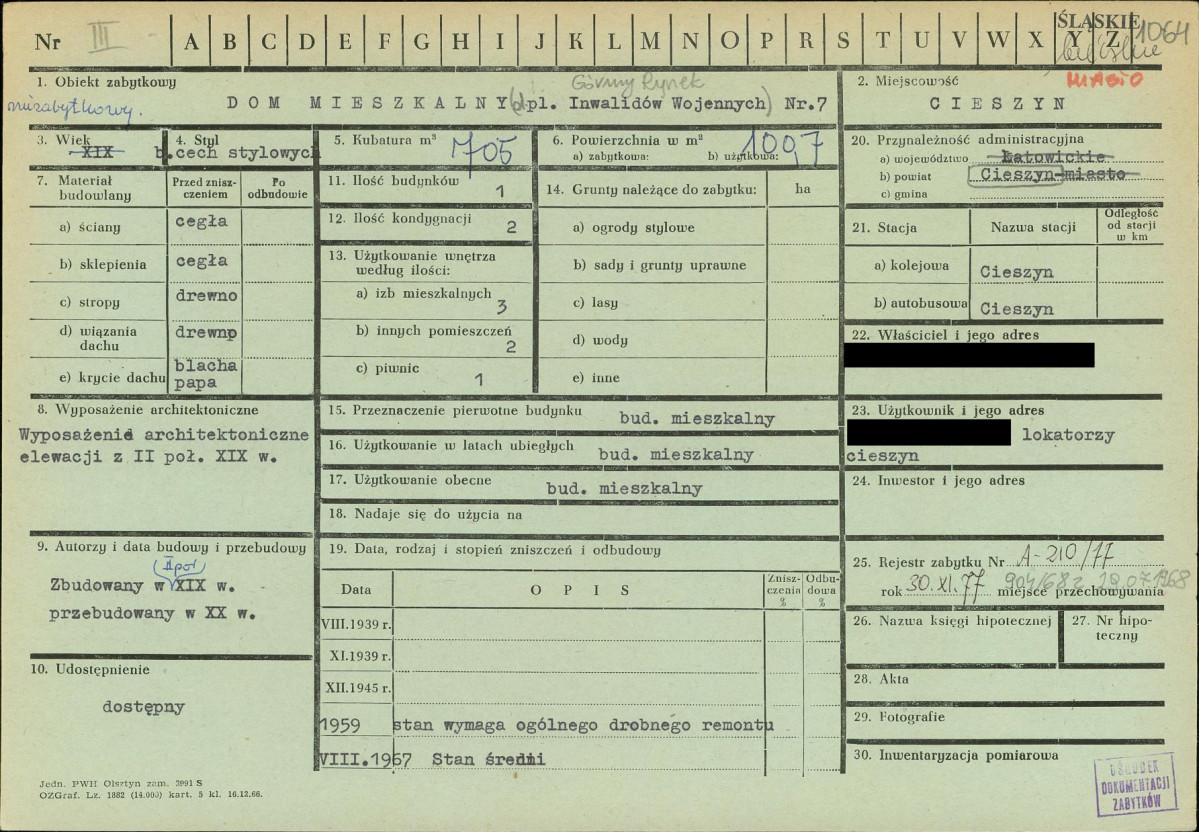 Nr III A B C D E F G H I J K L M N O P R S T U V W X Y Z
ŚLĄSKIE 1064
bielskie
MIASTO
1. Obiekt zabytkowy
niezabytkowy.
Górny Rynek
DOM MIESZKALNY (d. pl. Inwalidów Wojennych) Nr.7
2. Miejscowość
CIESZYN
3. Wiek
XIX
4. Styl
b.cech stylowych
5. Kubatura m³
705
6. Powierzchnia w m²
a) zabytkowa: b) użytkowa:
100,7
7. Materiał budowlany
Przed zniszczeniem
Po odbudowie
a) ściany cegła
b) sklepienia cegła
c) stropy drewno
d) wiązania dachu drewnp
e) krycie dachu blacha papa
8. Wyposażenie architektoniczne
Wyposażenie architektoniczne
elewacji z II poł. XIX w.
9. Autorzy i data budowy i przebudowy
II poł
Zbudowany w XIX w.
przebudowany w XX w.
10. Udostępnienie
dostępny
11. Ilość budynków 1
12. Ilość kondygnacji 2
13. Użytkowanie wnętrza
według ilości:
a) izb mieszkalnych 3
b) innych pomieszczeń 2
c) piwnic 1
14. Grunty należące do zabytku: ha
a) ogrody stylowe
b) sady i grunty uprawne
c) lasy
d) wody
e) inne
15. Przeznaczenie pierwotne budynku bud. mieszkalny
16. Użytkowanie w latach ubiegłych bud. mieszkalny
17. Użytkowanie obecne bud. mieszkalny
18. Nadaje się do użycia na
19. Data, rodzaj i stopień zniszczeń i odbudowy
Data OPIS Zniszczenia % Odbudowa %
VIII.1939 r.
XI.1939 r.
XII.1945 r.
1959 stan wymaga ogólnego drobnego remontu
VIII.1967 Stan średni
20. Przynależność administracyjna
a) województwo Katowickie
b) powiat Cieszyn-miasto
c) gmina
21. Stacja Nazwa stacji Odległość od stacji w km
a) kolejowa Cieszyn
b) autobusowa Cieszyn
22. Właściciel i jego adres
23. Użytkownik i jego adres
lokatorzy
cieszyn
24. Inwestor i jego adres
25. Rejestr zabytku Nr A-210/77
rok 30.XI.77 904/68 z 19.07.1968
miejsce przechowywania
26. Nazwa księgi hipotecznej
27. Nr hipoteczny
28. Akta
29. Fotografie
30. Inwentaryzacja pomiarowa
OŚRODEK
DOKUMENTACJI
ZABYTKÓW
Jedn. PWH Olsztyn zam. 3991 S
OZGraf. Lz. 1882 (14.000) kart. 5 kl. 16.12.66.